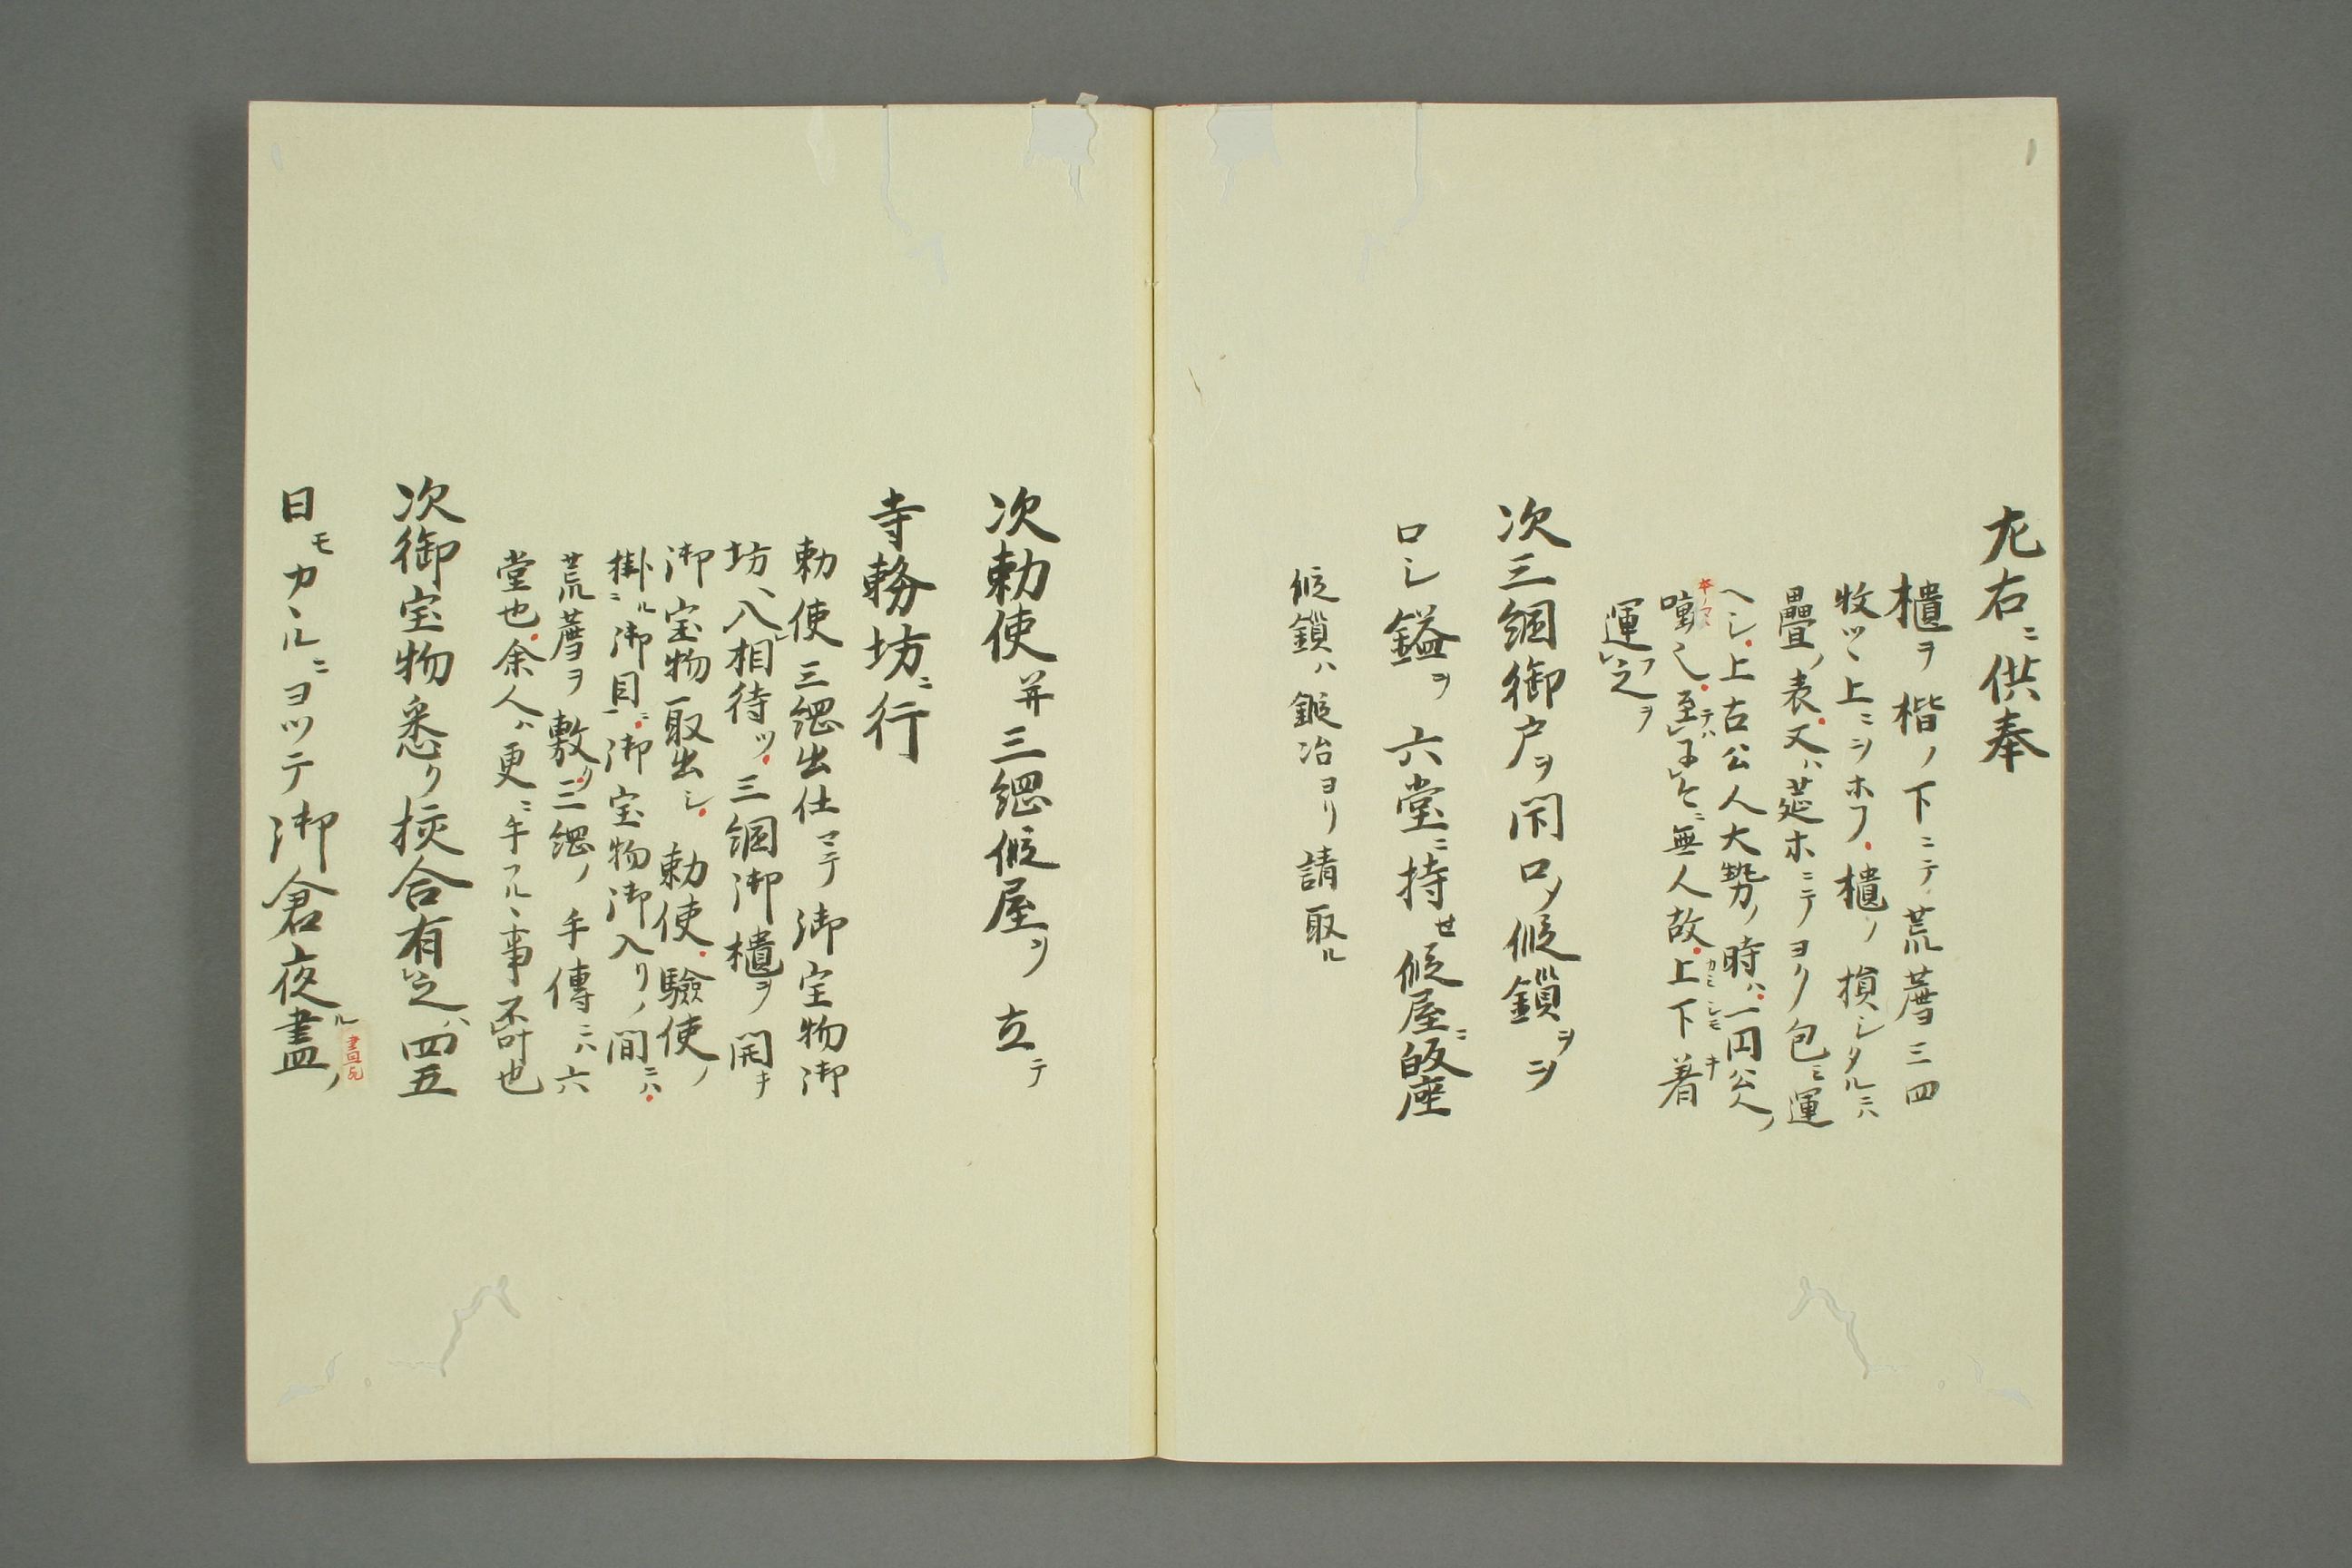 左右ニ供奉
櫃ヲ楷ノ下ニテ荒薦三四
牧ツヽ上ニシホフ櫃ノ損シタルニハ
畳ノ表又ハ莚ホニテヨク包ミ運
ヘシ上古公人大勢ノ時ハ一円公人ノ
至テハ無人故上下着キ
運フ之ヲ
次三綱御戸ヲ閇口ノ假鎖ヲヲシ
ロシ鎰ヲ六堂ニ持セ假屋ニ皈座
假鎖ハ鍛冶ヨリ請取ル
次勅使并三綱假屋ヲ立テ
寺務坊ニ行
勅使三綱出仕マテ御宝物御
坊ヘ入相待ツ三綱御櫃ヲ開キ
御宝物取出シ勅使驗使ノ
掛ル御目ニ御宝物御入リノ間ニハ
荒薦ヲ敷ク三綱ノ手傳ニハ六
堂也余人ハ更ニ手フルヽ事不叶也
次御宝物悉ク挍合有之ハ四五
日モカヽルニヨツテ御倉夜畫ル